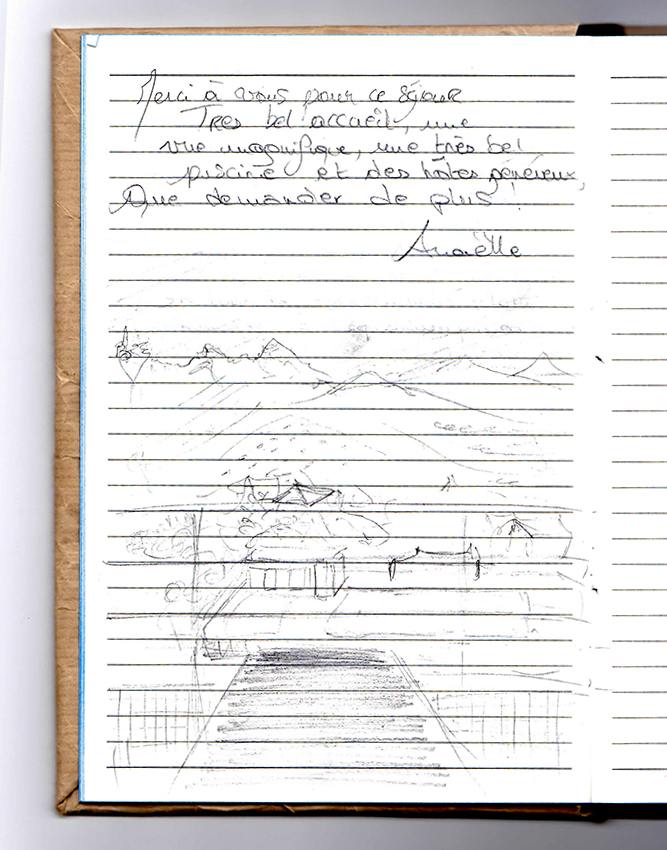 Merci à vous pour ce séjour
Tres bel accueil, une
vue magnifique, une très bel
piscine et des hôtes généreux,
Que demander de plus !
Anaëlle